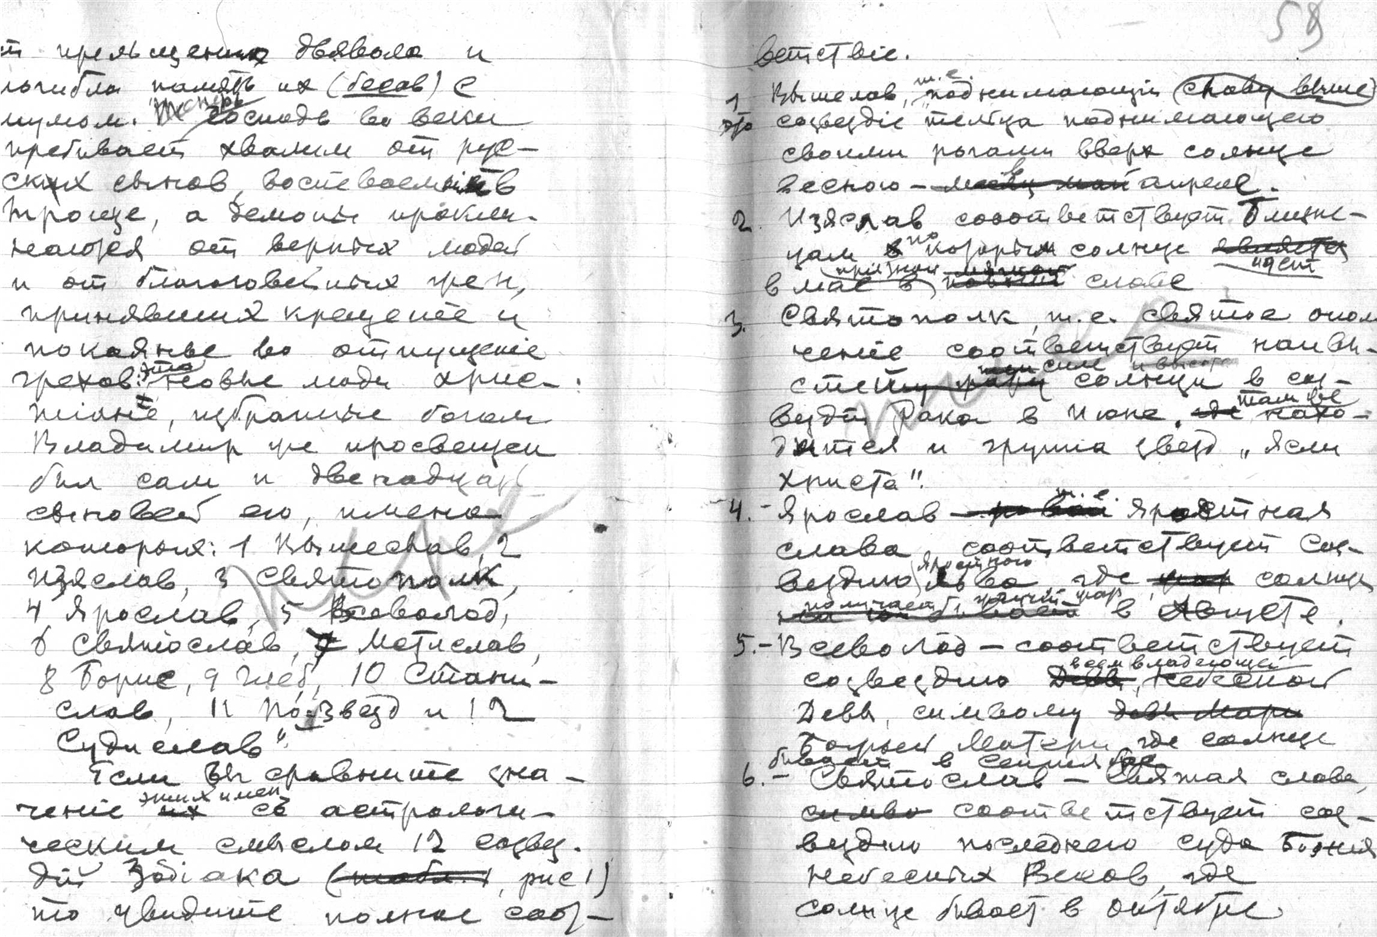 прельщения дьявола и
погибла память их (бесов) с
шумом. Теперь господь во веки
пребывает хвалим от рус-
ских сынов, воспеваем в
Троице, а демоны прокли-
наются от верных людей
и от благоговейных жен,
принявших крещеніе и
покаянье во отпущеніе
грехов: это новые люди хрис-
тіане, избранные богом
Владимир же просвещен
был сам и двенадцать
сыновей его, имена
которых: 1 Вышеслав, 2
Изяслав, 3 Святополк,
4 Ярослав, 5 Всеволод,
6 Святослав, 7 Мстислав,
8 Борис, 9 Глеб, 10 Стани-
слав, 11 Позвезд и 12
Судислав".
Если вы сравните зна-
ченіе этих имен со астрологи-
ческим смыслом 12 созвез-
дій Зодіака (рис 1)
то увидите полное соот-
59
ветствіе.
1 Вышеслав, т.е. поднимающій славу выше
это созвездіе тельца поднимающего
своими рогами вверх солнце
весною – апреле.
2. Изяслав соответствует Близне-
цам по которым солнце идет
в мае в славе
3. Святополк, т.е. святое опол
ченіе соответствует наивы-
сшей силе солнца в соз-
вездіи Рака в Июне. там же нахо-
дится и группа звезд „Ясли
Христа".
4.- Ярослав – т.е. Яростная
слава, соответствует соз-
вездию яростного Льва, где солнце
получает в Августе.
5.- Всеволод – соответствует
созвездию всем владеющей небесной
Девы, символу
Божьей Матери, где солнце
бывает в Сентябре
6.- Святослав – Святая слава,
соответствует соз-
вездию последнего суда Божия
Небесных Весов, где
солнце бывает в октябре